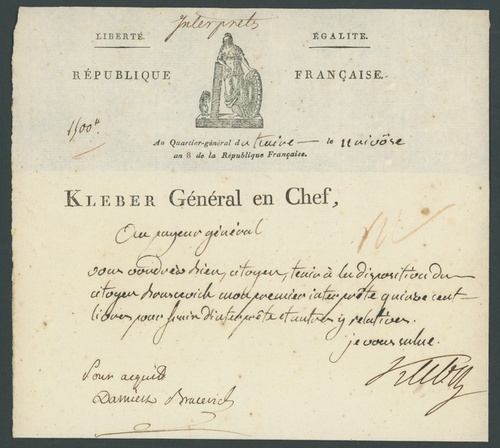 Interprets
LIBERTÉ. ÉGALITE.
RÉPUBLIQUE FRANÇAISE.
1500#
Au Quartier-général du Kaire le 11 nivôse
an 8 de la République Française.
KLEBER Général en Chef,
Au payeur général
vous voudrez bien, citoyen, tenir à la disposition du
citoyen Bracewich mon premier interprête quinze cent
livres pour frais d'interprête et autres y relatives.
je vous salue.
Kleber
Pour acquit
Damien Bracevich